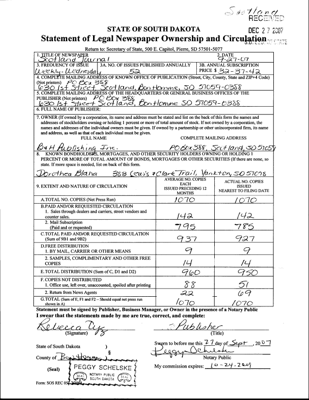 Scotland
RECEIVED
DEC 27 2007
STATE OF SOUTH DAKOTA
Statement of Legal Newspaper Ownership and Circulation
Return to: Secretary of State, 500 E. Capitol, Pierre, SD 57501-5077
1. TITLE OF NEWSPAPER
Scotland Journal
2. DATE
9-27-07
3. FREQUENCY OF ISSUE
Weekly, Wednesday
3A. NO. OF ISSUES PUBLISHED ANNUALLY
52
3B. ANNUAL SUBSCRIPTION
PRICE $
4. COMPLETE MAILING ADDRESS OF KNOWN OFFICE OF PUBLICATION (Street, City, County, State and ZIP+4 Code)
(Not printers) PO Box 388
630 1st Street Scotland, Bon Homme SD 57059-0388
5. COMPLETE MAILING ADDRESS OF THE HEADQUARTERS OR GENERAL BUSINESS OFFICES OF
PUBLISHER (Not printers) PO Box 388
630 1st Street Scotland, Bon Homme SD 57059-0388
6. FULL NAME OF PUBLISHER:
7. OWNER (If owned by a corporation, its name and address must be stated and list on the back of this form the names and
addresses of stockholders owning or holding 1 percent or more of total amount of stock. If not owned by a corporation, the
names and addresses of the individual owners must be given. If owned by a partnership or other unincorporated firm, its name
and address, as well as that of each individual must be given.
FULL NAME COMPLETE MAILING ADDRESS
B & H Publishing Inc. PO Box 388, Scotland, SD 57059
8. KNOWN BONDHOLDERS, MORTGAGES, AND OTHER SECURITY HOLDERS OWNING OR HOLDING 1
PERCENT OR MORE OF TOTAL AMOUNT OF BONDS, MORTGAGES OR OTHER SECURITIES (If there are none, so
state. If more space is needed, list on back of this form).
Dorothea Blaha Lewis & Clark Trail, Yankton, SD 57078
9. EXTENT AND NATURE OF CIRCULATION
AVERAGE NO. COPIES EACH ISSUED PRECEDING 12 MONTHS
ACTUAL NO. COPIES ISSUED NEAREST TO FILING DATE
A. TOTAL NO. COPIES (Net Press Run) 1070 1070
B. PAID AND/OR REQUESTED CIRCULATION
1. Sales through dealers and carriers, street vendors and
counter sales. 142 142
2. Mail Subscription
(Paid and or requested) 795 785
C. TOTAL PAID AND/OR REQUESTED CIRCULATION
(Sum of 9B1 and 9B2) 937 927
D. FREE DISTRIBUTION
1. BY MAIL, CARRIER OR OTHER MEANS 9 9
2. SAMPLES, COMPLIMENTARY AND OTHER FREE
COPIES 14 14
E. TOTAL DISTRIBUTION (Sum of C, D1 and D2) 960 950
F. COPIES NOT DISTRIBUTED
1. Office use, left over, unaccounted, spoiled after printing 88 51
2. Return from News Agents 22 69
G. TOTAL (Sum of E, F1 and F2 – Should equal net press run
shown in A) 1070 1070
Statement must be signed by Publisher, Business Manager, or Owner in the presence of a Notary Public
I swear that the statements made by me are true, correct, and complete:
Publisher
(Signature) (Title)
State of South Dakota )
Sworn to before me this 27 day of Sept, 2007
County of Bon Homme )
Peggy Schelske
Notary Public
(Seal)
PEGGY SCHELSKE
NOTARY PUBLIC
SOUTH DAKOTA
My commission expires: